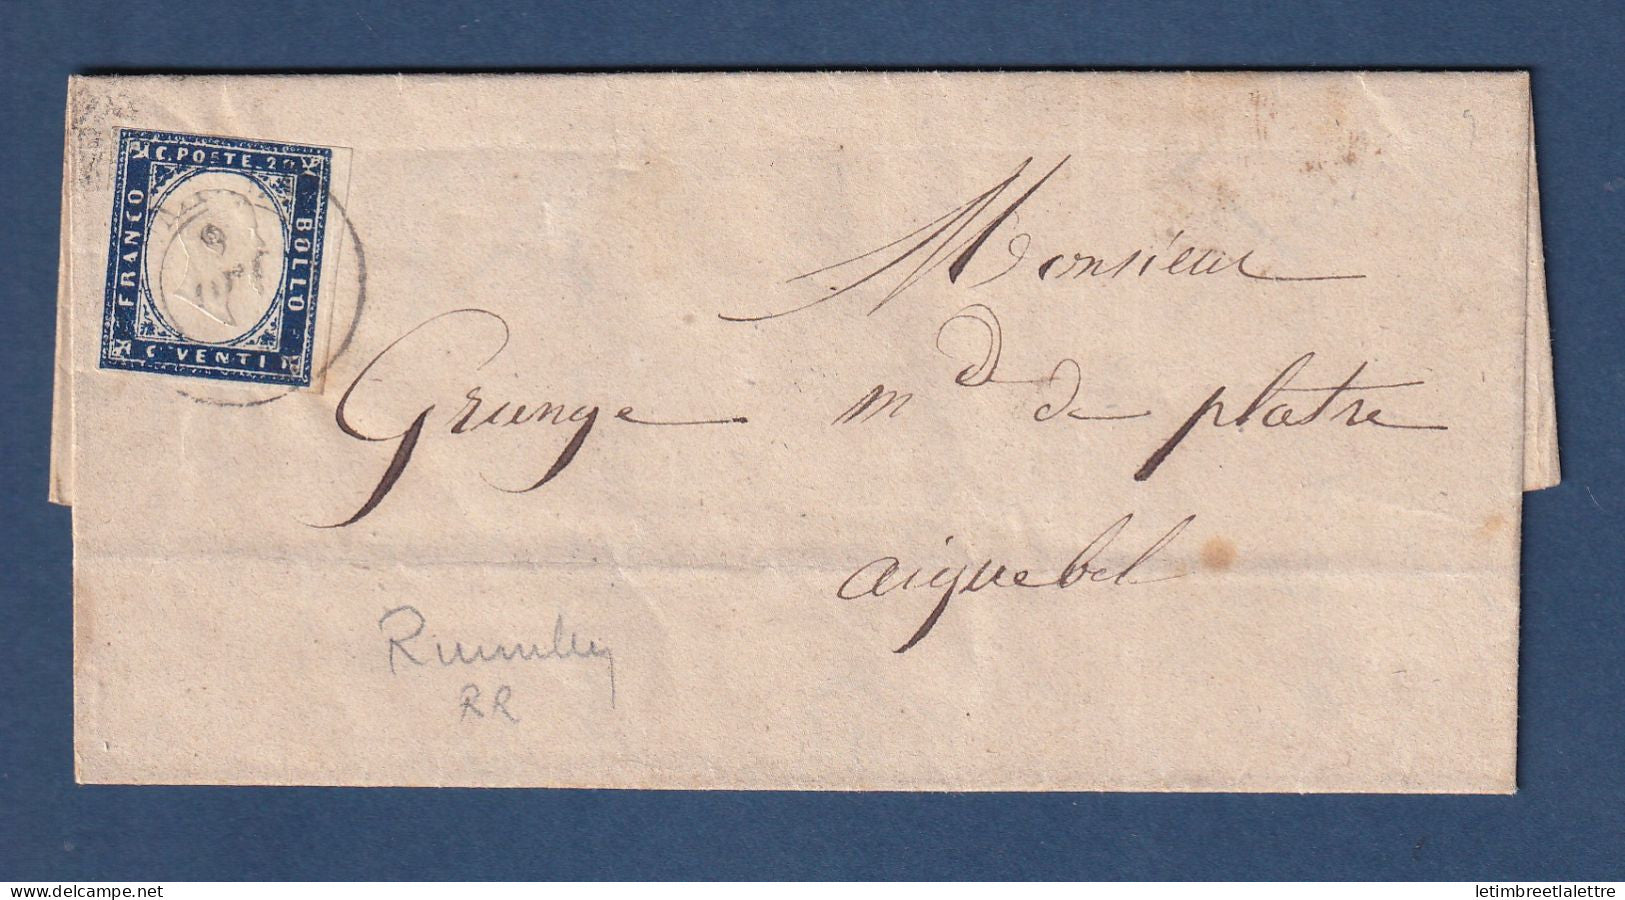 C. POSTE. 20
FRANCO
BOLLO
C VENTI
9
Monsieur
Grange md de platre
aiguebel
Rumilly
RR
delcampe.net
letimbreetlalettre